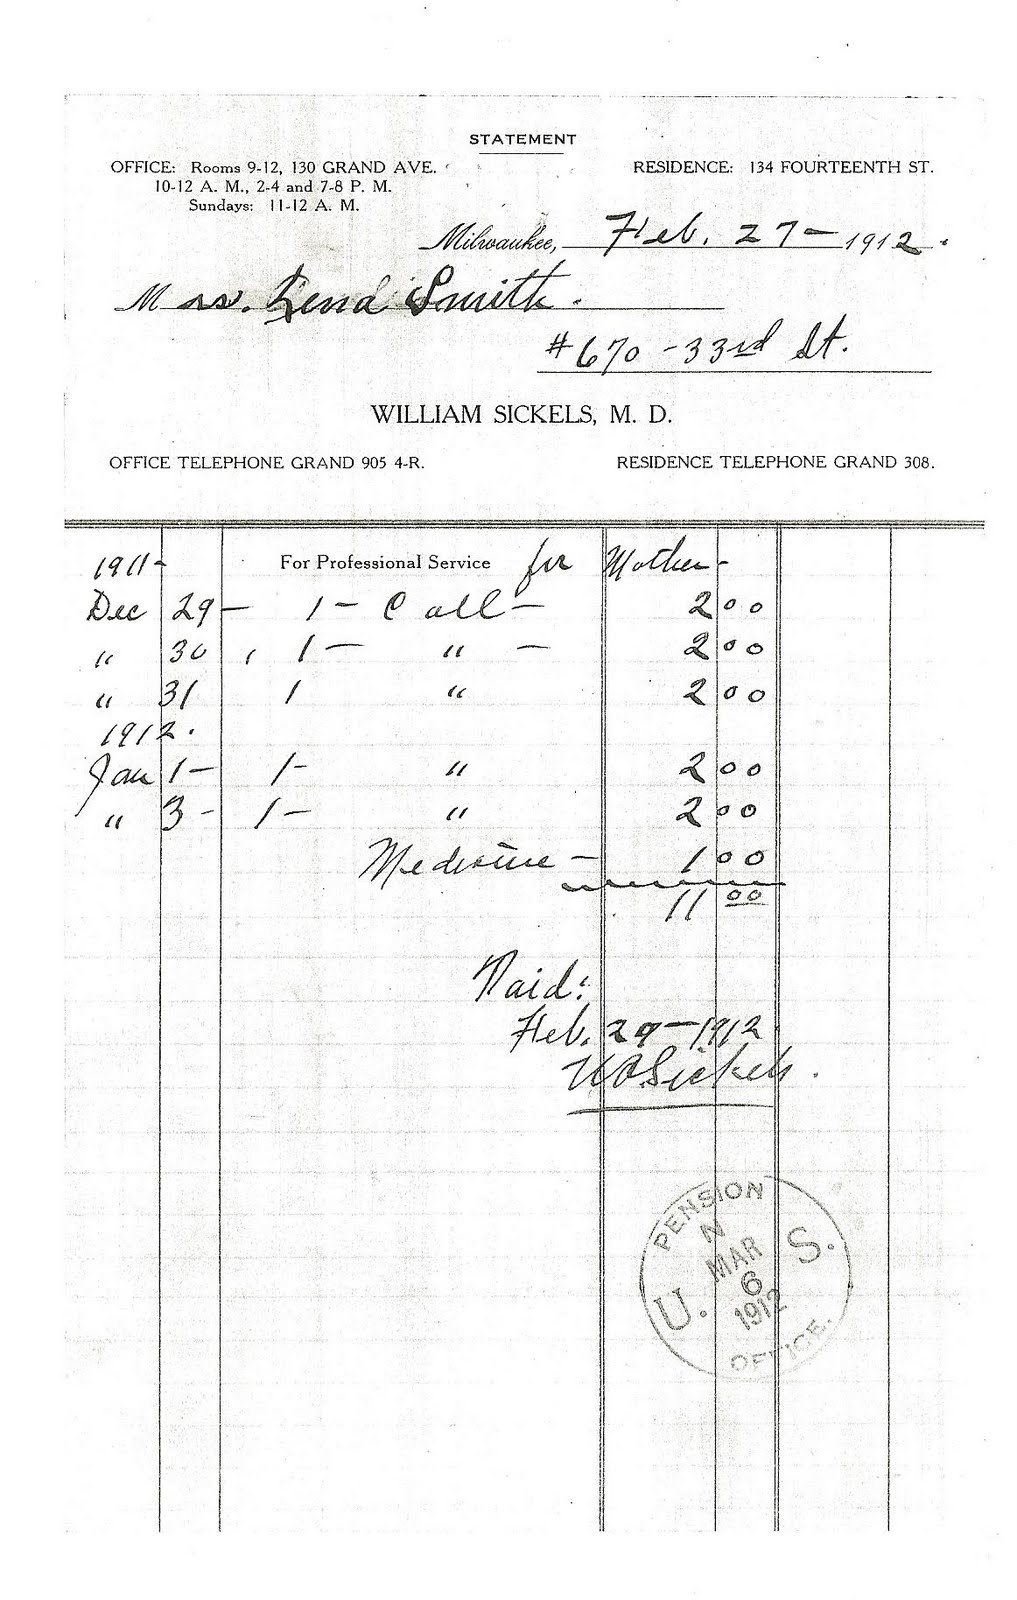 STATEMENT
OFFICE: Rooms 9-12, 130 GRAND AVE.
10-12 A. M., 2-4 and 7-8 P. M.
Sundays: 11-12 A. M.
RESIDENCE: 134 FOURTEENTH ST.
Milwaukee, Feb. 27 — 1912.
Mrs. Lena Smith.
#670 - 33rd St.
WILLIAM SICKELS, M. D.
OFFICE TELEPHONE GRAND 905 4-R.
RESIDENCE TELEPHONE GRAND 308.
1911- For Professional Service for Mother-
Dec 29 — 1 - Call - 2 00
" 30 , 1 — " — 2 00
" 31 1 " 2 00
1912.
Jan 1 - 1- " 2 00
" 3 - 1 - " 2 00
Medicine - 1 00
11 00
Paid:
Feb. 29 — 1912
Sickels.
PENSION
N
MAR
6
1912
U. S.
OFFICE.